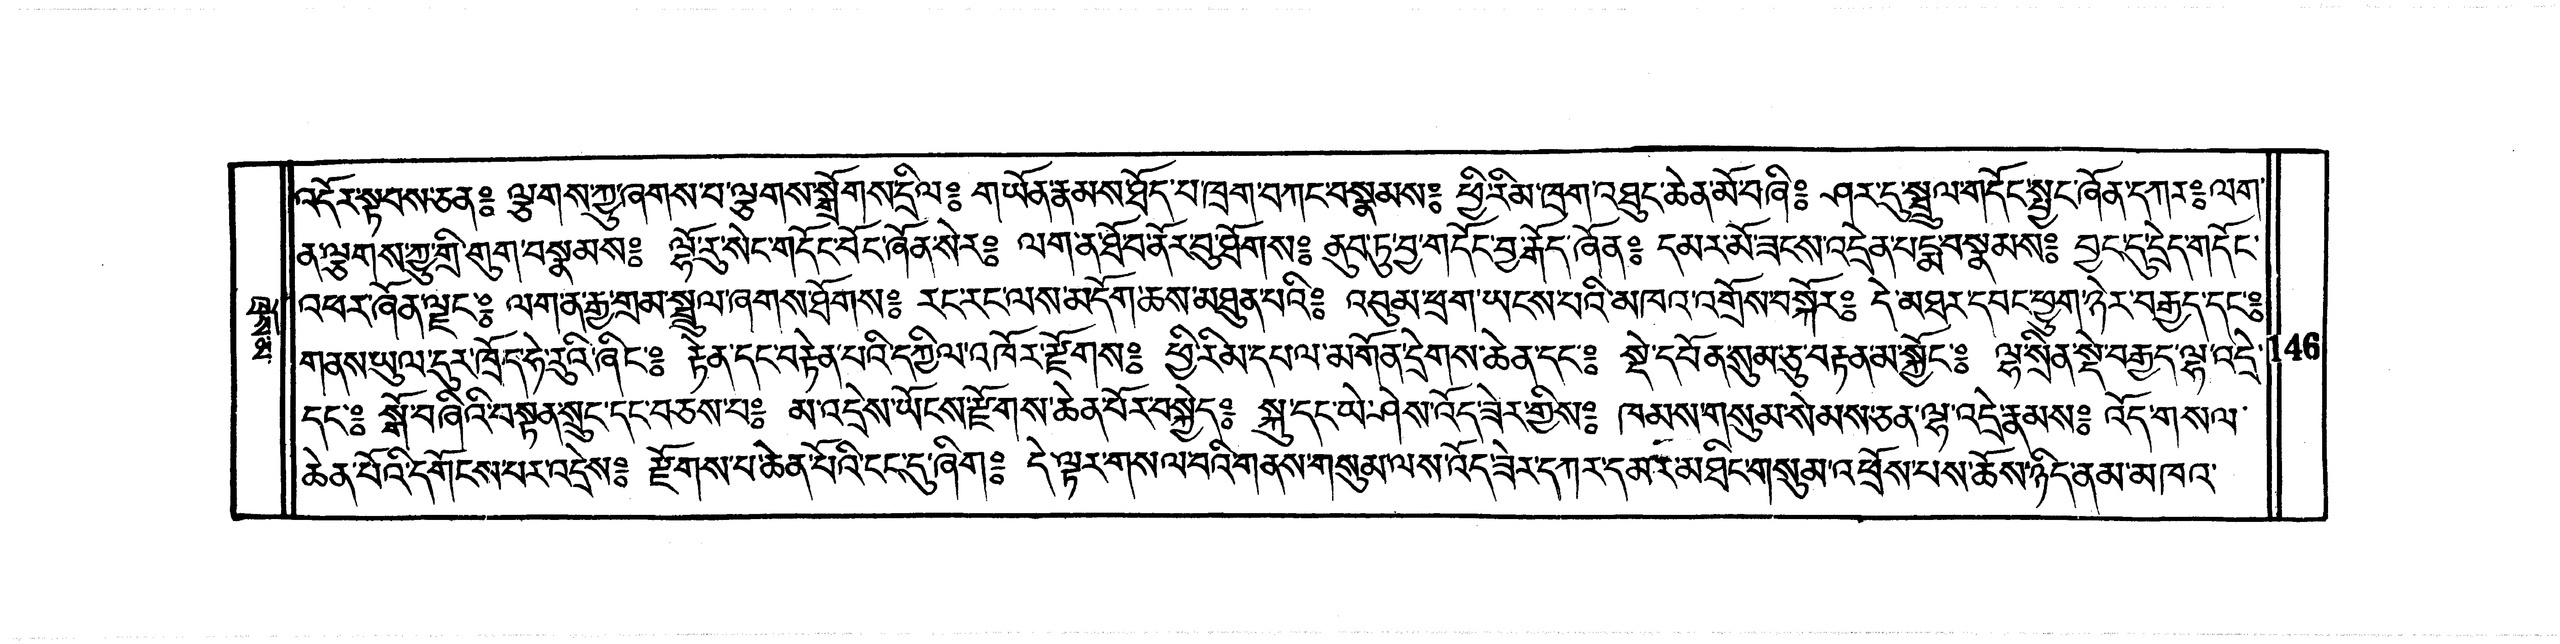 འདོར་སྟབས་ཅན༔ ལྕགས་ཀྱུ་ཞགས་པ་ལྕགས་སྒྲོགས་དྲིལ༔ གཡོན་རྣམས་ཐོད་པ་ཁྲག་བཀང་བསྣམས༔ ཕྱི་རིམ་ཁྲག་འཐུང་ཆེན་མོ་བཞི༔ ཤར་དུ་སྦྲུལ་གདོང་སྤྱང་ཞོན་དཀར༔ ལག་
ན་ལྕགས་ཀྱུ་གྲི་གུག་བསྣམས༔ ལྷོ་རུ་སེང་གདོང་བོང་ཞོན་སེར༔ ལག་ན་ཐོ་བ་ནོར་བུ་ཐོགས༔ ནུབ་ཏུ་བྱ་གདོང་བྱ་རྒོད་ཞོན༔ དམར་མོ་ཟངས་འདྲེན་པདྨ་བསྣམས༔ བྱང་དུ་དྲེད་གདོང་
འཕར་ཞོན་ལྗང༔ ལག་ན་རྒྱ་གྲམ་སྦྲུལ་ཞགས་ཐོགས༔ རང་རང་ལས་མདོག་ཆས་མཐུན་པའི༔ འབུམ་ཕྲག་ཡངས་པའི་མཁའ་འགྲོས་བསྐོར༔ དེ་མཐར་དབང་ཕྱུག་ཉེར་བརྒྱད་དང༔
གནས་ཡུལ་དུར་ཁྲོད་ཧེ་རུའི་ཞིང༔ རྟེན་དང་བརྟེན་པའི་དཀྱིལ་འཁོར་རྫོགས༔ ཕྱི་རིམ་དཔལ་མགོན་དྲེགས་ཆེན་དང༔ སྡེ་དཔོན་སུམ་ཅུ་བརྟན་མ་སྐྱོང༔ ལྷ་སྲིན་སྡེ་བརྒྱད་ལྷ་འདྲེ་
146
དང༔ སྒོ་བ་ཞིའི་བསྟན་སྲུང་དང་བཅས་པ༔ མ་འདྲེས་ཡོངས་རྫོགས་ཆེན་པོར་བསྐྱེད༔ སྐུ་དང་ཡེ་ཤེས་འོད་ཟེར་གྱིས༔ ཁམས་གསུམ་སེམས་ཅན་ལྷ་འདྲེ་རྣམས༔ འོད་གསལ་
ཆེན་པོའི་དགོངས་པར་འདྲེས༔ རྫོགས་པ་ཆེན་པོའི་ངང་དུ་ཞིག༔ དེ་ལྟར་གསལ་བའི་གནས་གསུམ་ལས་འོད་ཟེར་དཀར་དམར་མཐིང་གསུམ་འཕྲོས་པས་ཆོས་ཉིད་ནམ་མཁའ་